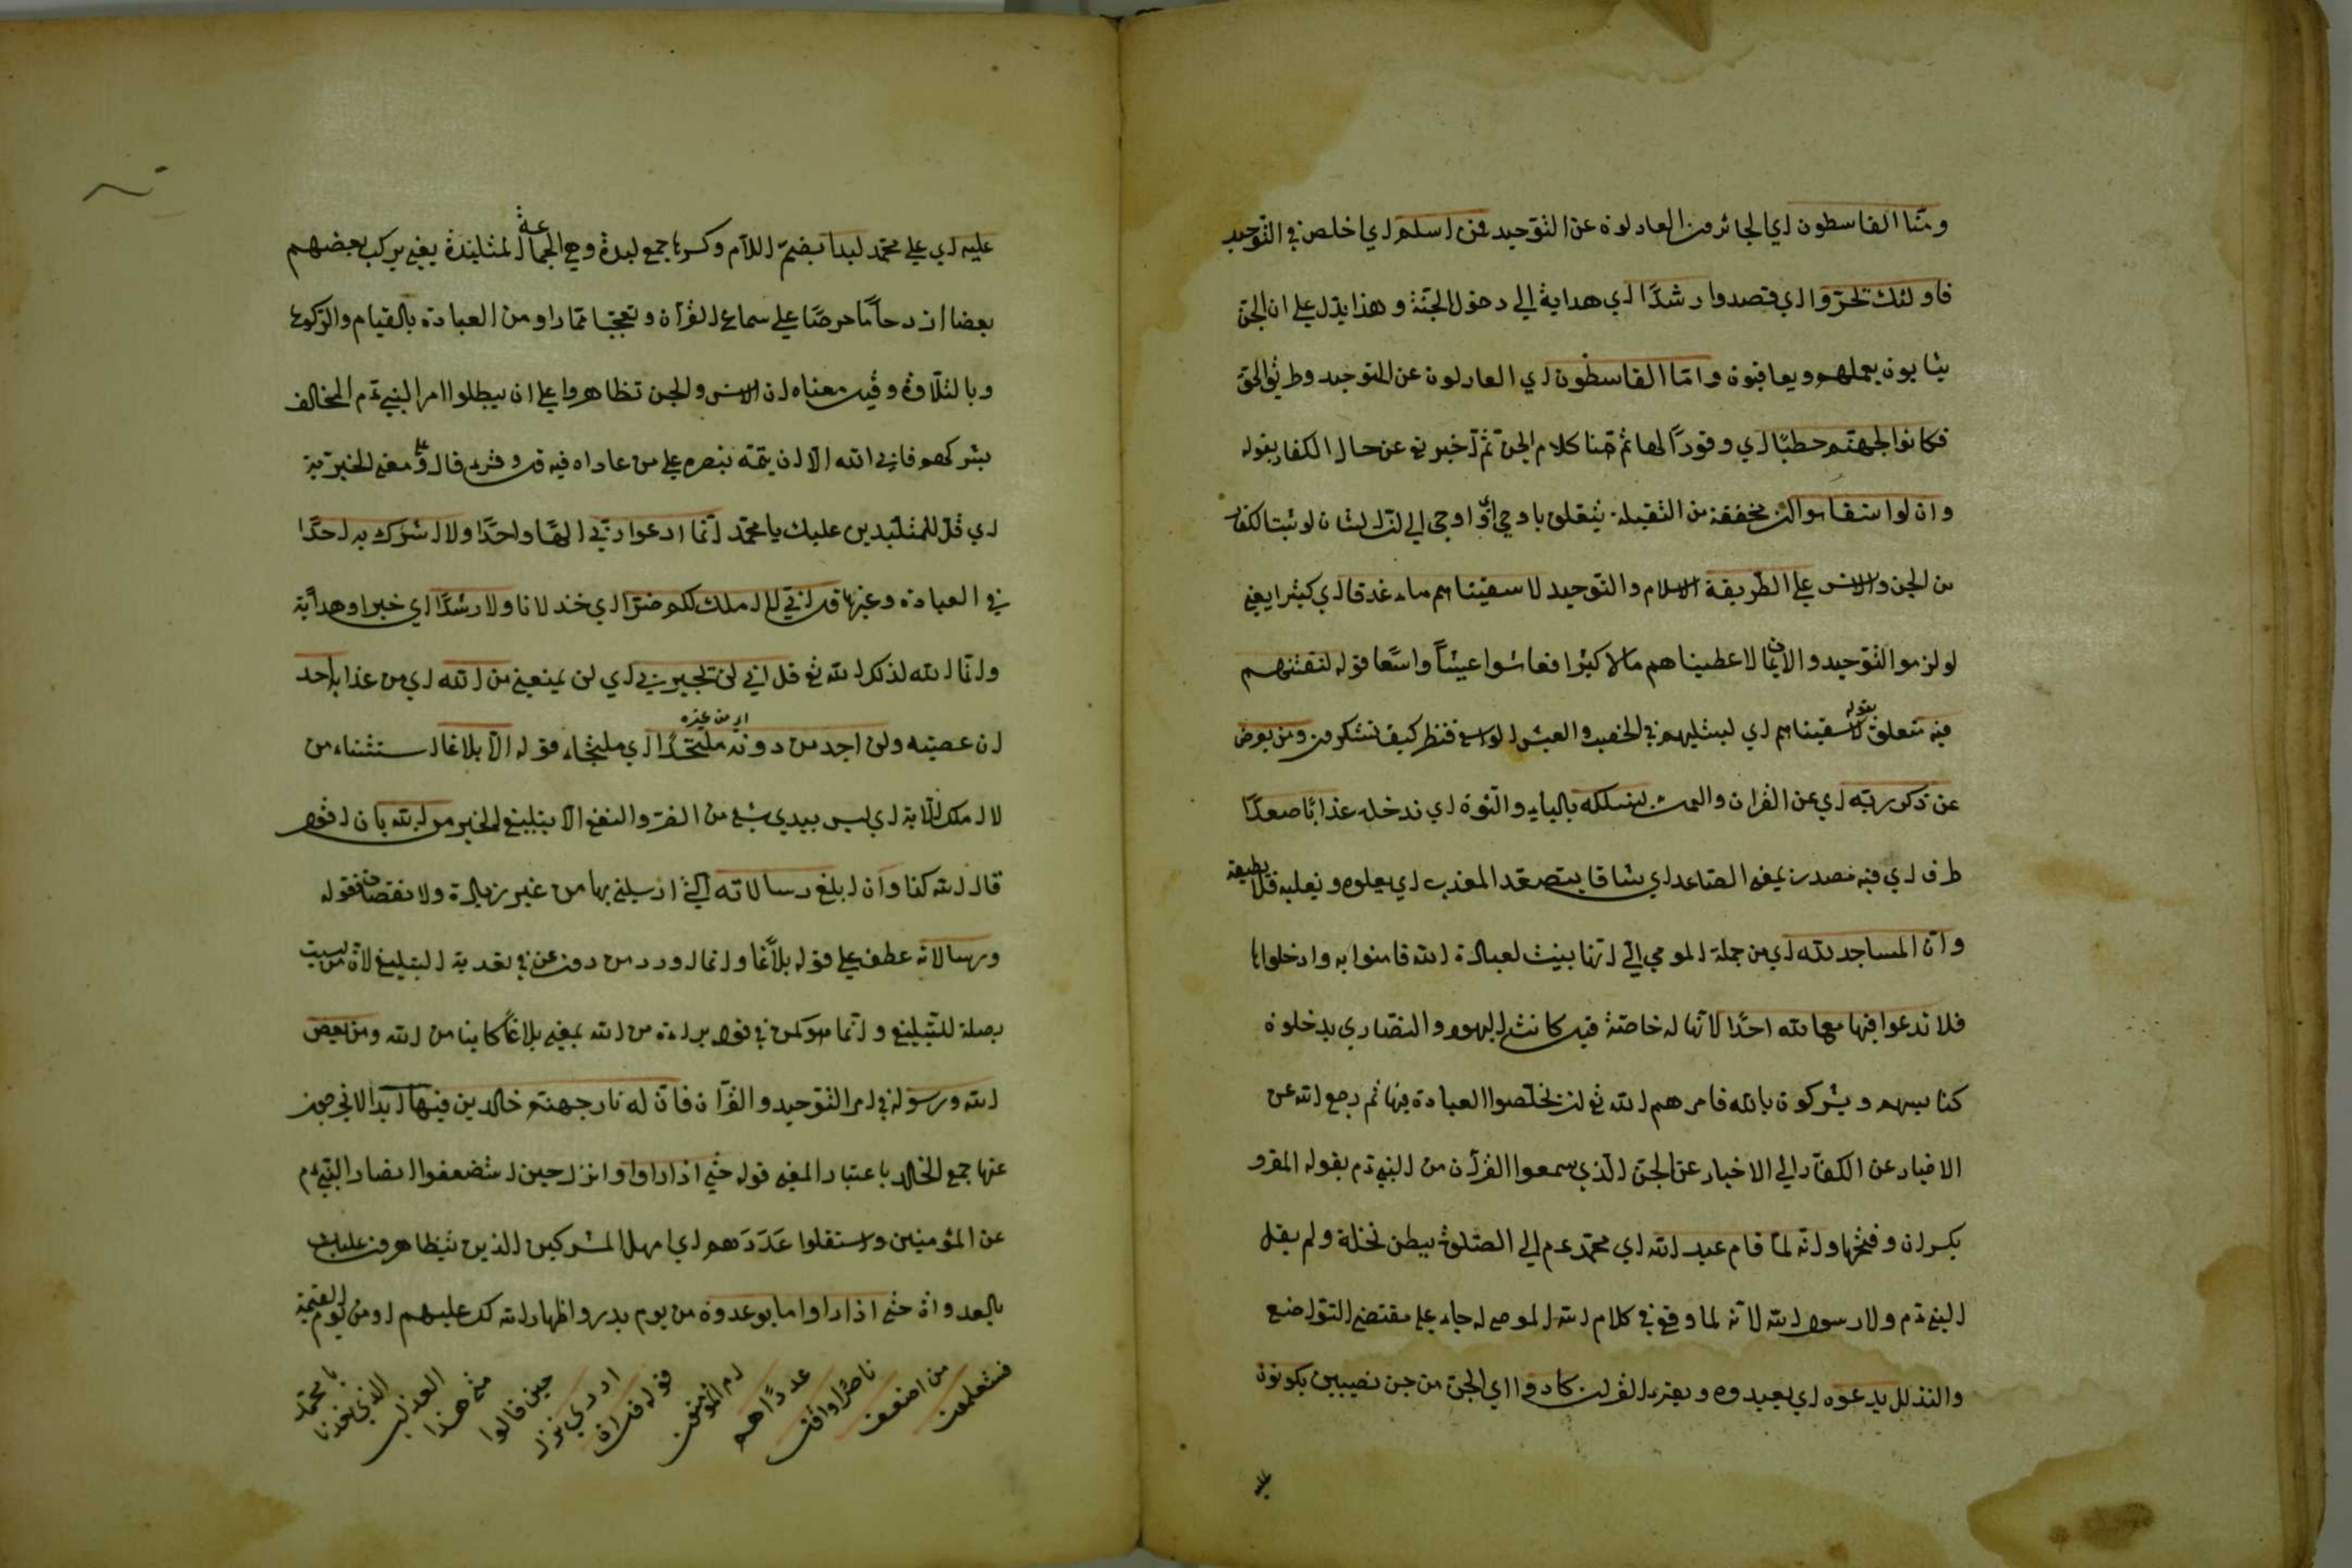 ومنّا القاسطون اي الجائرون العادلون عن التوحيد فمن اسلم اي اخلص في التوحيد
فاولئك تحرّوا اي قصدوا رشدًا اي هداية الي دخول الجنّة و هذا يدل علي ان الجن
يثابون بعملهم ويعاقبون وامّا القاسطون اي العادلون عن التوحيد وطريق الحق
فكانوا لجهنّم حطبًا اي وقودًا لها تم هنا كلام الجن ثم اخبر تع عن حال الكفار بقوله
وان لو استقاموا ان مخففة من الثقيلة يتعلق باوحي اي اوحي الي ان الشان لو ثبت الكفار
من الجن والانس علي الطريقة الاسلام والتوحيد لاسقيناهم ماء غدقا اي كثيرا يعني
لو لزموا التوحيد والايمان لاعطيناهم مالا كثيرا فعاشوا عيشًا واسعا قوله لنفتنهم
فيه متعلق بقوله لاسقيناهم اي لنبتليهم في الخصب والعيش الواسع فننظر كيف تشكرون ومن يعرض
عن ذكر ربّه اي عن القران والعمل يسلكه بالياء والنون اي ندخله عذابًا صعدًا
طرف اي فيه مصدر بمعني الصاعد اي شاقا يتصعّد المعذب اي يعلوه ويغلبه فلا يطيقه
وانّ المساجد لله اي من جملة الموحي اليّ انّها بنيت لعبادة الله فامنوا به وادخلوها
فلا تدعوا فيها مع الله احدًا لانّها له خاصّة قيل كانت اليهود والنصاري يدخلون
كنايسهم ويشركون بالله فامرهم الله تع ان يخلّصوا العبادة فيها ثم رجع الله عن
الاخبار عن الكفّار الي الاخبار عن الجن الّذي سمعوا القرآن من النبي عم بقوله المقرو
بكسر ان وفتحها وانّه لمّا قام عبد الله اي محمّد عم الي الصّلوة ببطن نخلة ولم يقل
النبي عم ولا رسول الله لانّه لما وقع في كلام الله الموحي له جاء علي مقتضي التواضع
والتذلل يدعوه اي يعبدوه ويقرء القران كادوا اي الجن من جن نصيبين يكونون
عليه
عليه اي علي محمّد لبدا بضمّ اللام وكسرها جمع لبدة وهي الجماعة المتلبّدة يعني يركب بعضهم
بعضا ازدحامًا حرصًا علي سماع القرآن وتعجّبا ممّا راو من العبادة بالقيام والركوع
وبالتلاوة وقيل معناه ان الانس والجن تظاهروا علي ان يبطلوا امر النبي عم المخالف
بشركهم فابي الله الّا ان يتمّه بنصره علي من عاداه فيه قل وقريء قال و علي معني الخبريّة
اي قل للمتلبّدين عليك يا محمّد انّما ادعوا ربّي الهًا واحدًا ولا اشرك به احدًا
في العبادة وغيرها قل انّي لا املك لكم ضرّا اي خذلانا ولا رشدًا اي خيرا وهداية
وانّما الله لذلك الله تع قل انّي لن يجيرني اي لن يمنعني من الله اي من عذابه احد
ان عصيته ولن اجد من دونه اي من غيره ملتحدًا اي ملتجاء قوله الّا بلاغا استثناء من
لا املك الآية اي ليس بيدي شئ من الضر والنفع الّا بتبليغ الخير من الله بان اقول
قال الله كذا وان ابلغ رسالاته الّتي ارسلني بها من غير زيادة ولا نقصان فقوله
ورسالاته عطف علي قوله بلاغا وانما اورد من دون عن في تعدية التبليغ لانّ من ليست
بصلة للتبليغ وانّما هو كمن في قوله براءة من الله بمعني بلاغًا كاينا من الله ومن يعص
الله ورسوله في امر التوحيد والقرآن فانّ له نار جهنّم خالدين فيها ابدا لا يخرجون
عنها جمع الخالد باعتبار المعني قوله حتّي اذا راوا وانزل حين استضعفوا انصار النبي عم
عن المؤمنين واستقلوا عَدَدَهم اي امهل المشركين الذين يتظاهرون عليك
بالعدوان حتّي اذا راوا ما يوعدون من يوم بدر واظهار الله لك عليهم او من يوم القيمة
فستعلمون من اضعف ناصرًا واقل عددًا هم ام المؤمنون قوله قل ان ادري نزل حين قالوا متي هذا العذاب الذي تعدنا يا محمّد